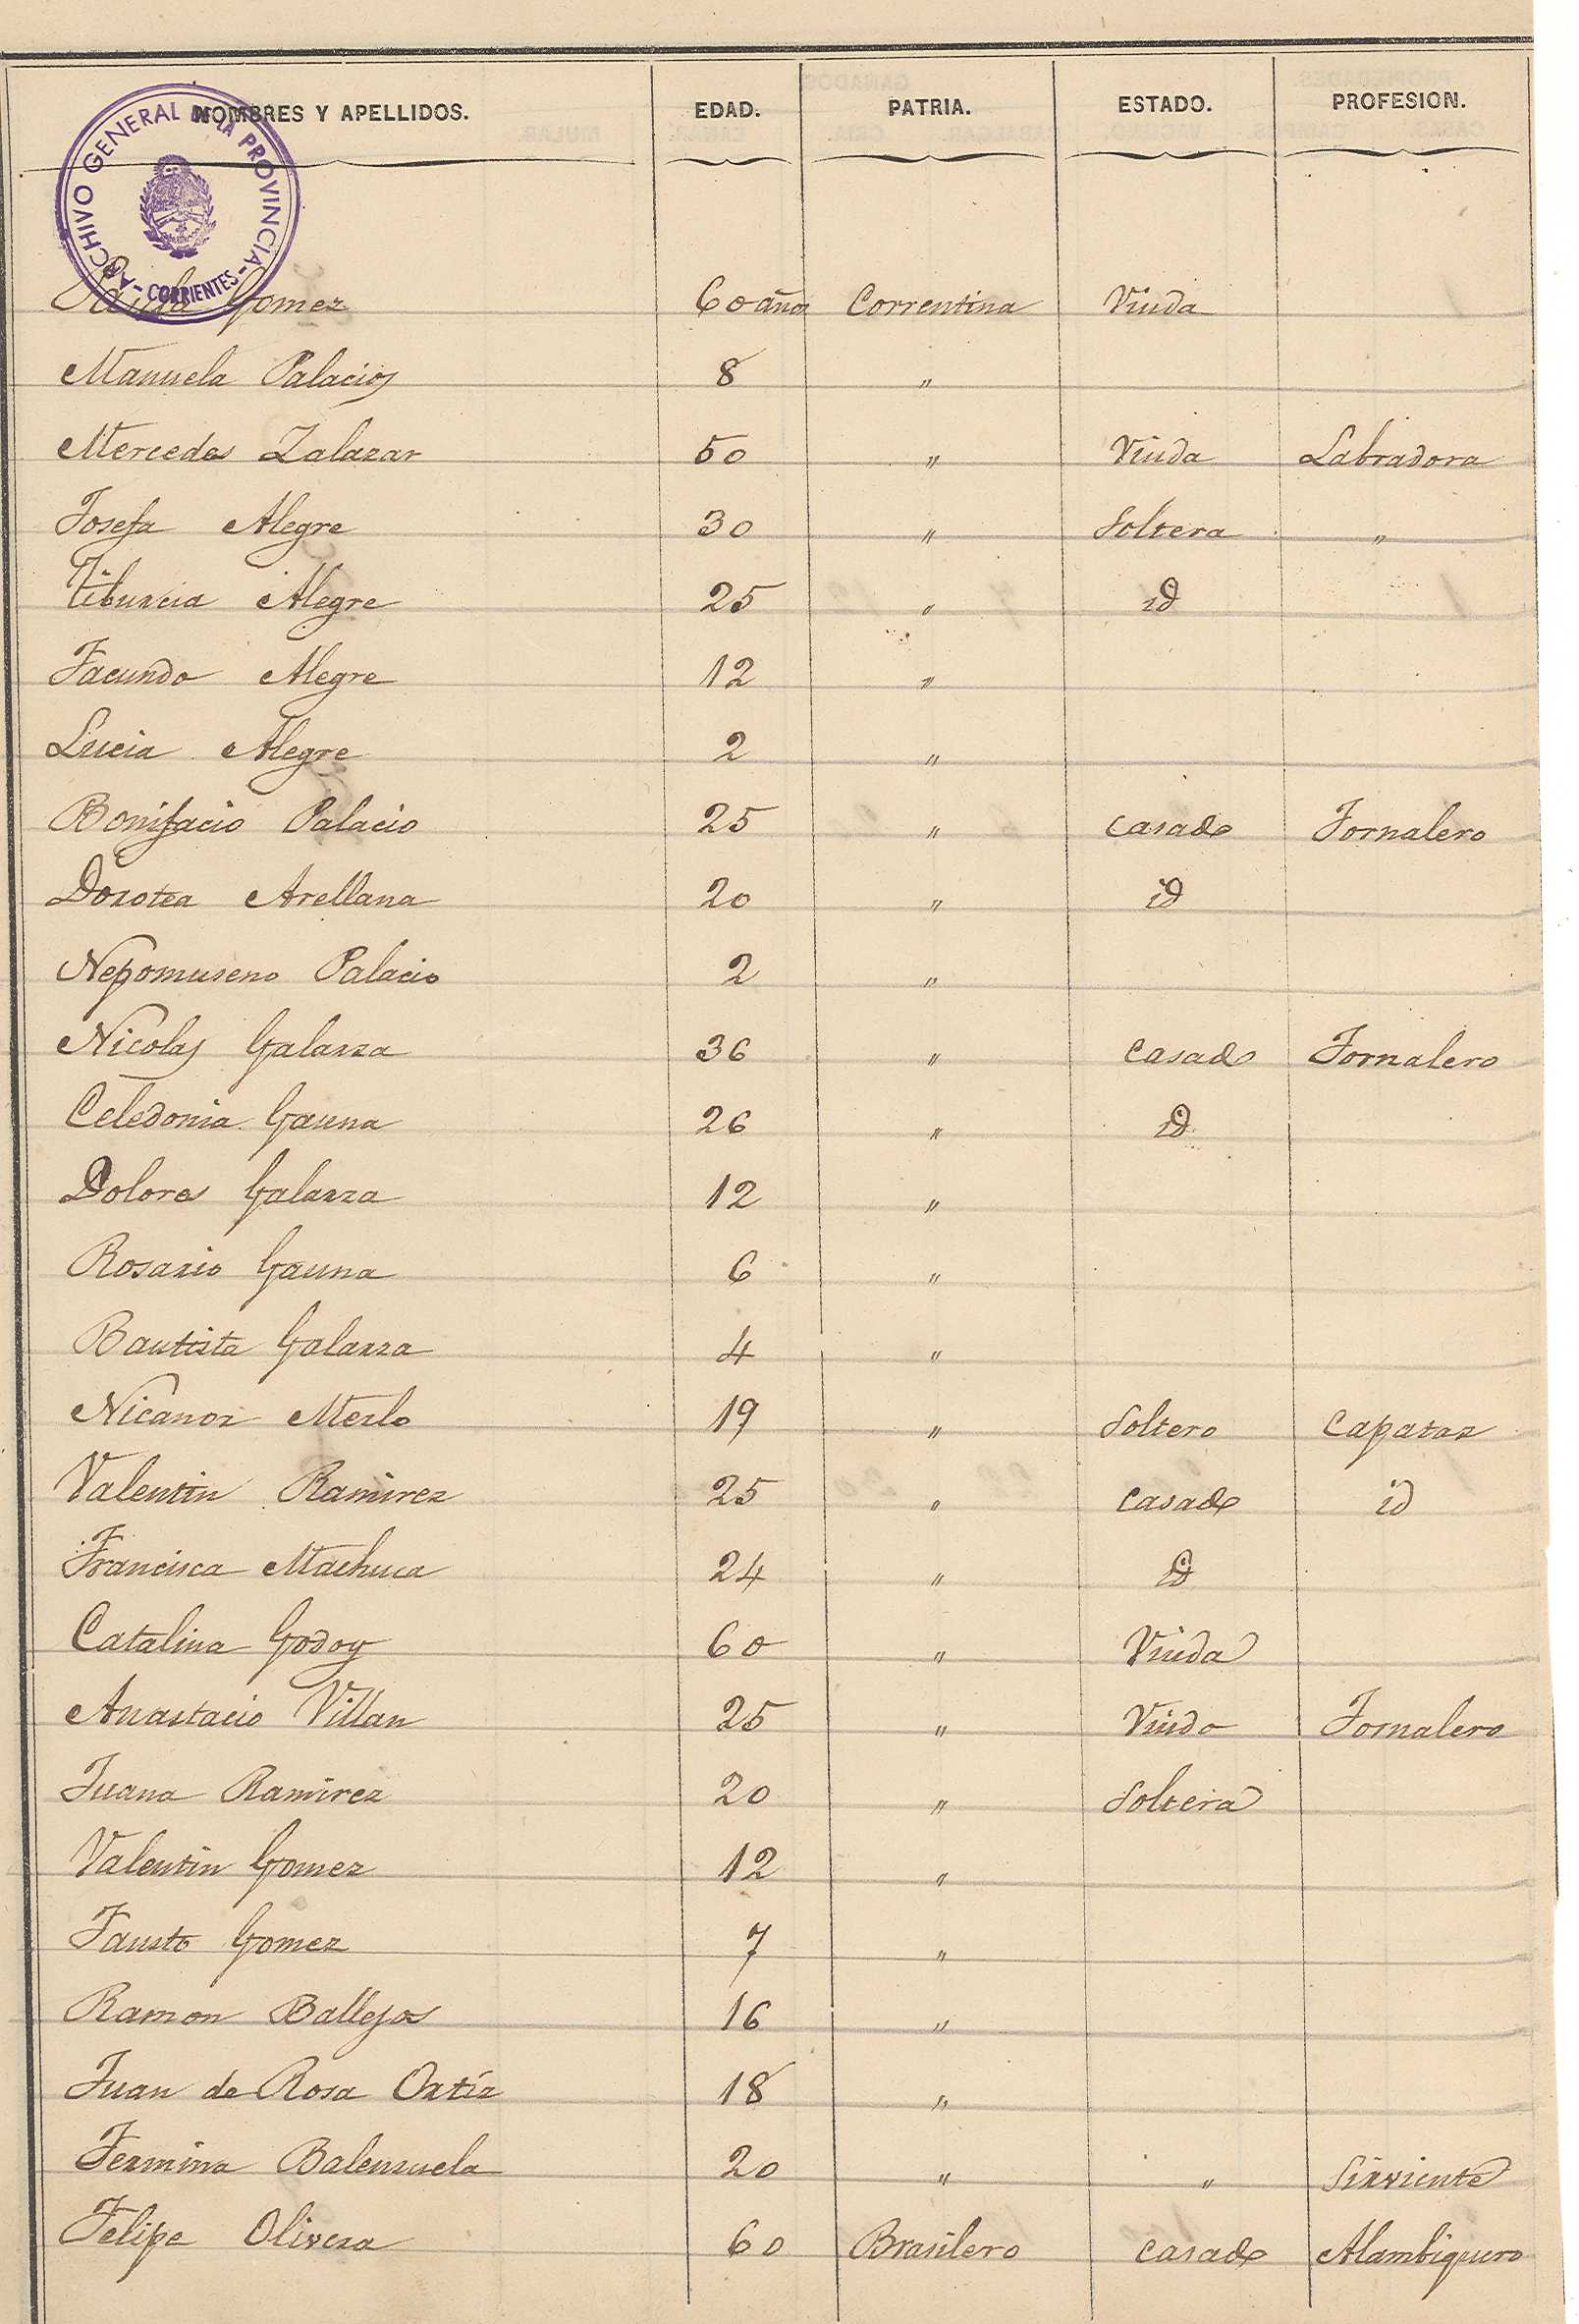 NOMBRES Y APELLIDOS. EDAD. PATRIA. ESTADO. PROFESION.
ARCHIVO GENERAL DE LA PROVINCIA - CORRIENTES -
Paula Gomez 60 años Correntina Viuda
Manuela Palacios 8 "
Mercedes Zalazar 50 " Viuda Labradora
Josefa Alegre 30 " Soltera "
Tiburcia Alegre 25 " id
Facundo Alegre 12 "
Lucia Alegre 2 "
Bonifacio Palacio 25 " casado Jornalero
Dorotea Arellana 20 " id
Nepomuseno Palacio 2 "
Nicolas Galarza 36 " casado Jornalero
Celedonia Gauna 26 " id
Dolores Galarza 12 "
Rosario Gauna 6 "
Bautista Galarza 4 "
Nicanor Merlo 19 " Soltero Capataz
Valentin Ramirez 25 " casado id
Francisca Machuca 24 " id
Catalina Godoy 60 " Viuda
Anastacio Villan 25 " Viudo Jornalero
Juana Ramirez 20 " Soltera
Valentin Gomez 12 "
Fausto Gomez 7 "
Ramon Ballejos 16 "
Juan de Rosa Ortíz 18 "
Fermina Balenzuela 20 " " Sirviente
Felipe Olivera 60 Brasilero casado Alambiquero